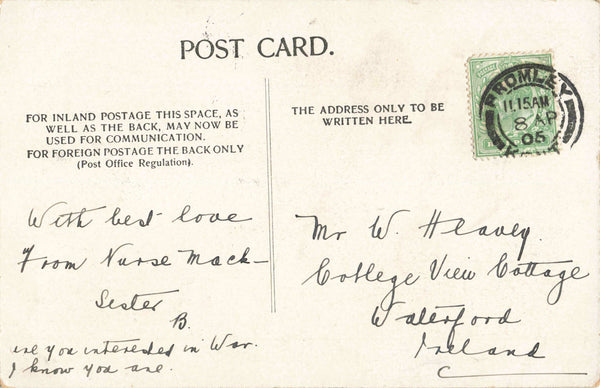 POST CARD.
FOR INLAND POSTAGE THIS SPACE, AS
WELL AS THE BACK, MAY NOW BE
USED FOR COMMUNICATION.
FOR FOREIGN POSTAGE THE BACK ONLY
(Post Office Regulation).
THE ADDRESS ONLY TO BE
WRITTEN HERE.
BROMLEY
11.15AM
8 AP
05
KENT
With best love
From Nurse Mack-
Sister
B.
are you interested in War.
I know you are.
Mr W. Heavey.
College View Cottage
Waterford
Ireland